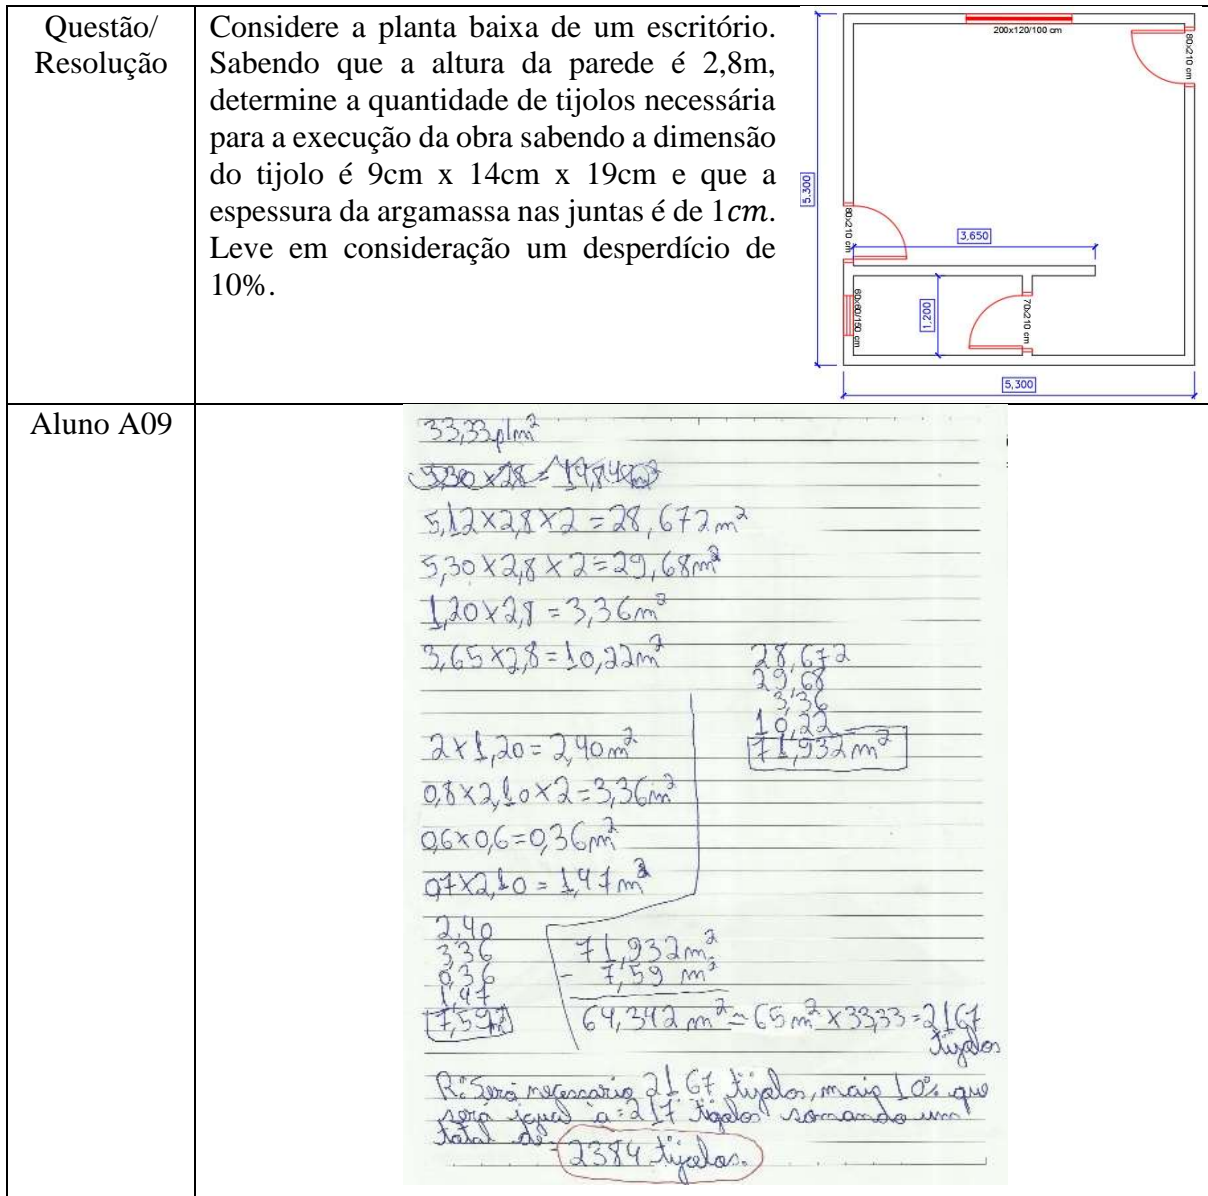 Questão/
Resolução
Considere a planta baixa de um escritório.
Sabendo que a altura da parede é 2,8m,
determine a quantidade de tijolos necessária
para a execução da obra sabendo a dimensão
do tijolo é 9cm x 14cm x 19cm e que a
espessura da argamassa nas juntas é de 1cm.
Leve em consideração um desperdício de
10%.
200x120/100 cm
80x210 cm
5,300
80x210 cm
3,650
60x60/150 cm
1,200
70x210 cm
5,300
Aluno A09
33,33 p/m²
5,12 x 2,8 x 2 = 28,672 m²
5,30 x 2,8 x 2 = 29,68 m²
1,20 x 2,8 = 3,36 m²
3,65 x 2,8 = 10,22 m²
28,672
29,68
3,36
10,22
71,932 m²
2 x 1,20 = 2,40 m²
0,8 x 2,10 x 2 = 3,36 m²
0,6 x 0,6 = 0,36 m²
0,7 x 2,10 = 1,47 m²
2,40
3,36
0,36
1,47
7,59 m²
71,932 m²
- 7,59 m²
64,342 m² = 65 m² x 33,33 = 2167
tijolos
R: Será necessario 2167 tijolos, mais 10% que
será igual a = 217 tijolos somando um
total de = 2384 tijolos.